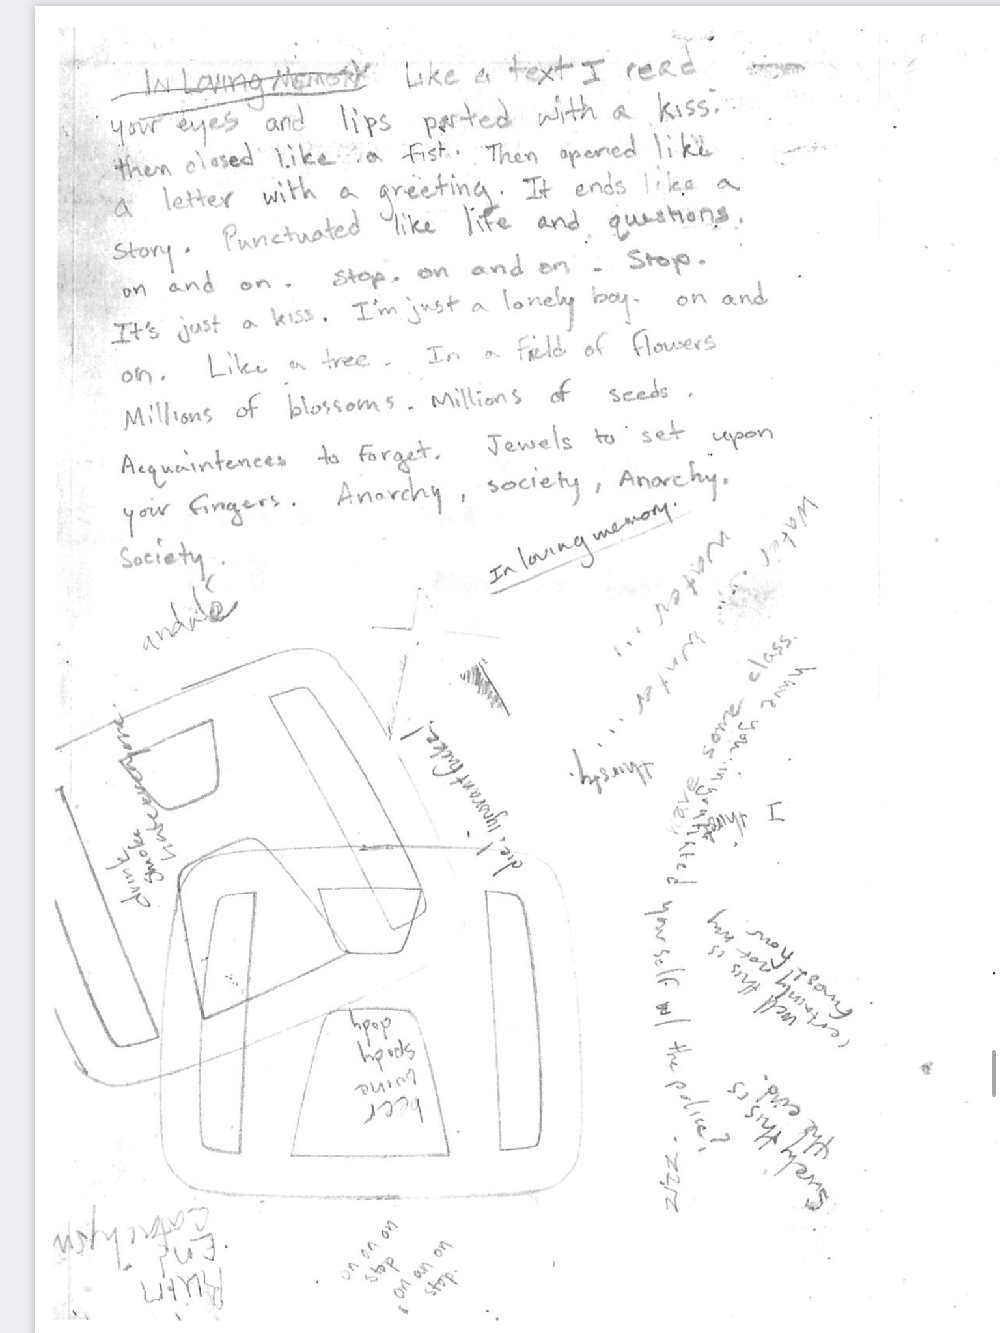 In Loving Memory Like a text I read
your eyes and lips parted with a kiss.
then closed like a fist. Then opened like
a letter with a greeting. It ends like a
story. Punctuated like life and questions.
on and on. stop. on and on. Stop.
It's just a kiss. I'm just a lonely boy. on and
on. Like a tree. In a field of flowers
Millions of blossoms. Millions of seeds.
Acquaintences to forget. Jewels to set upon
your fingers. Anarchy, society, Anarchy.
Society.
In loving memory.
Water...
water...
water...
thirsty.
die! ignorant fluke!
drink
smoke
I
class.
have you
yourself
the
well this is
not my
hour
Surely this is
the end.
beer
wine
on on on
stop
on on on
stop.
Ruin